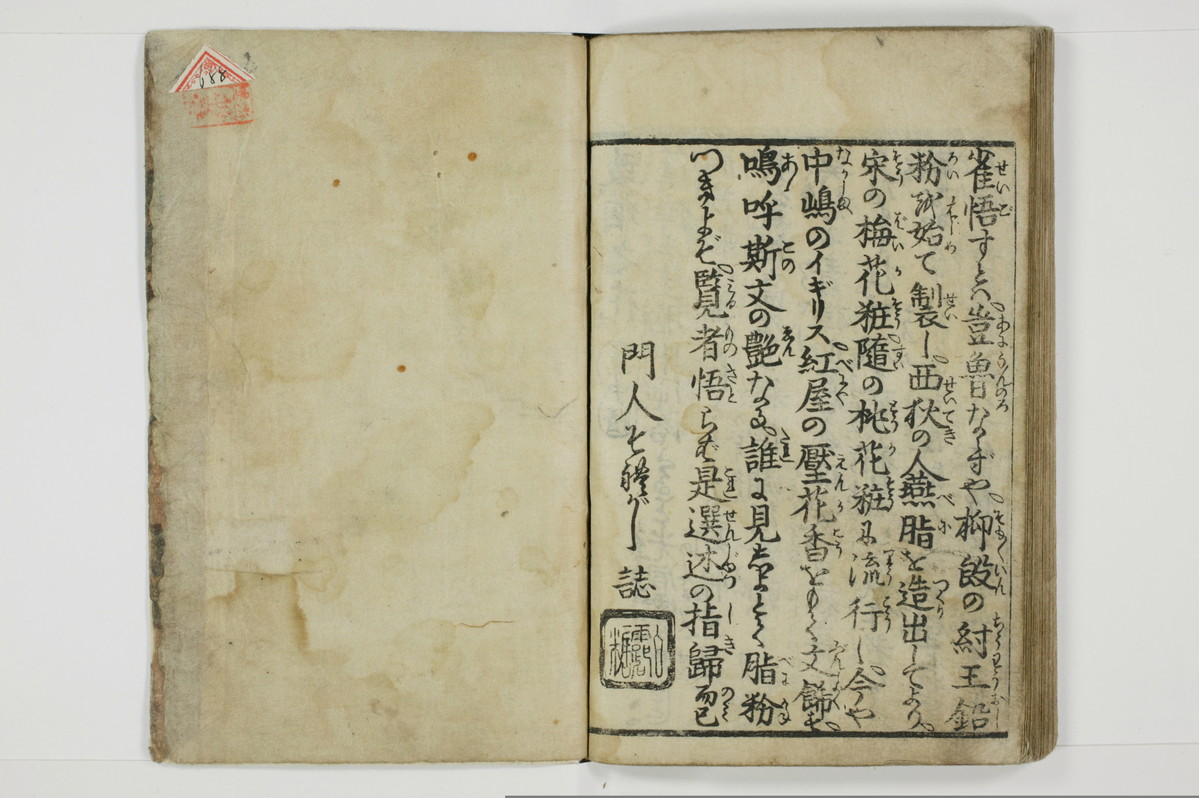 雀悟すとハ豈魯ならずや抑殷の紂王鉛
粉を始て製し西狄の人燕脂を造出してより
宋の梅花粧隨の桃花粧に流行し今や
中嶋のイギリス紅屋の壓花香をもて文飾も
嗚呼斯文の艶なる誰に見しよとて脂粉
つきよぞ覧者悟らむ是選述の指歸而已
門人 誌
188